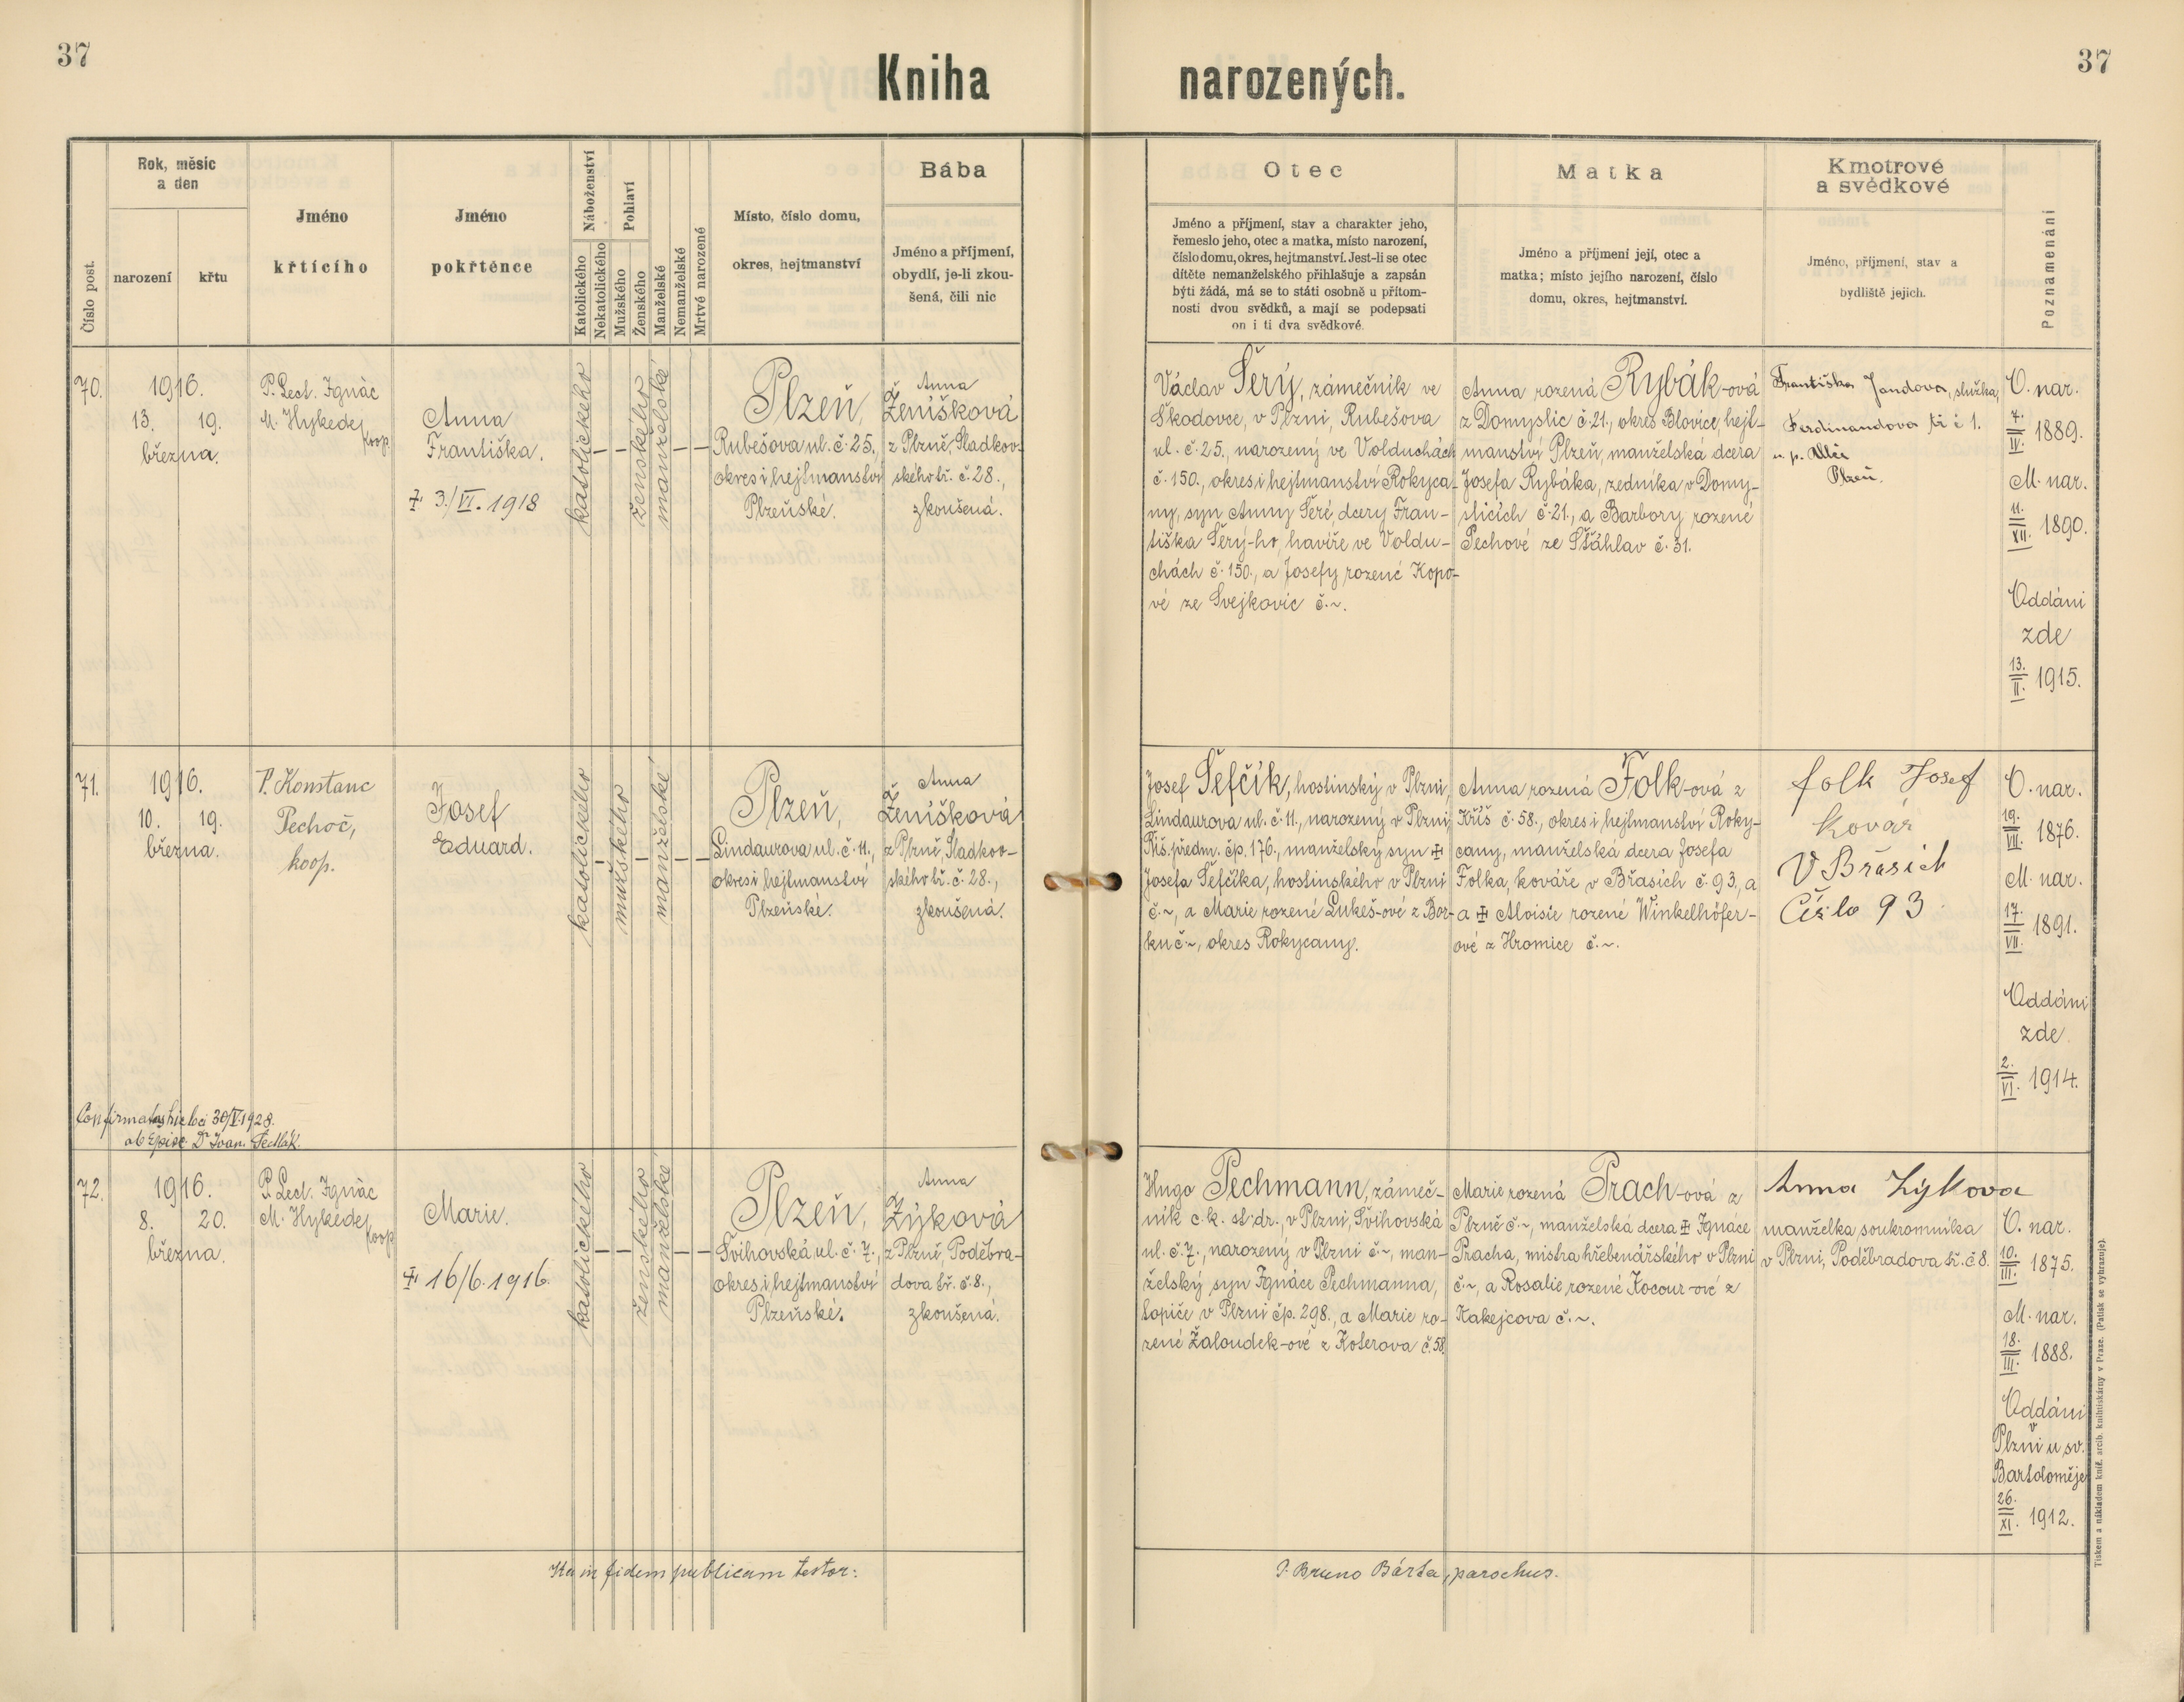 37
Kniha narozených.
37
Číslo post.
Rok, měsíc
a den
narození
křtu
Jméno
křtícího
Jméno
pokřtěnce
Náboženství
Katolického
Nekatolického
Pohlaví
Mužského
Ženského
Manželské
Nemanželské
Mrtvé narozené
Místo, číslo domu,
okres, hejtmanství
Bába
Jméno a příjmení,
obydlí, je-li zkou-
šená, čili nic
Otec
Jméno a příjmení, stav a charakter jeho,
řemeslo jeho, otec a matka, místo narození,
číslo domu, okres, hejtmanství. Jest-li se otec
dítěte nemanželského přihlašuje a zapsán
býti žádá, má se to státi osobně u přítom-
nosti dvou svědků, a mají se podepsati
on i ti dva svědkové.
Matka
Jméno a příjmení její, otec a
matka; místo jejího narození, číslo
domu, okres, hejtmanství.
Kmotrové
a svědkové
Jméno, příjmení, stav a
bydliště jejich.
Poznamenání
70.
1916.
13. 19.
března.
P. Lect. Ignác
M. Hykede,
koop.
Anna
Františka.
† 3./VI. 1918
katolického
ženského
manželské
Plzeň,
Rubešova ul. č. 25.,
okres i hejtmanství
Plzeňské.
Anna
Ženíšková
z Plzně, Sladkov-
ského tř. č. 28.,
zkoušená.
Václav Šerý, zámečník ve
Škodovce, v Plzni, Rubešova
ul. č. 25., narozený ve Volduchách
č. 150., okres i hejtmanství Rokyca-
ny, syn Anny Šeré, dcery Fran-
tiška Šerý-ho, havíře ve Voldu-
chách č. 150., a Josefy rozené Kopo-
vé ze Svejkovic č. ~.
Anna rozená Rybák-ová
z Domyslic č. 21., okres Blovice, hejt-
manství Plzeň, manželská dcera
Josefa Rybáka, zedníka v Domy-
slicích č. 21., a Barbory rozené
Pechové ze Šťáhlav č. 31.
Františka Jandova, služka,
Ferdinandova tř. č 1.
u p. Allči
Plzeň.
O. nar.
7./IV. 1889.
M. nar.
11./XII. 1890.
Oddáni
zde
13./II. 1915.
71.
1916.
10. 19.
března.
P. Konstanc
Pechoč,
koop.
Josef
Eduard.
katolického
mužského
manželské
Plzeň,
Lindaurova ul. č. 11.,
okres i hejtmanství
Plzeňské.
Anna
Ženíšková
z Plzně, Sladkov-
ského tř. č. 28.,
zkoušená.
Josef Šefčík, hostinský v Plzni,
Lindaurova ul. č. 11., narozený v Plzni,
Říš. předm. čp. 176., manželský syn ✠
Josefa Šefčíka, hostinského v Plzni
č. ~, a Marie rozené Lukeš-ové z Bor-
ku č. ~, okres Rokycany.
Anna rozená Folk-ová z
Kříš č. 58., okres i hejtmanství Roky-
cany, manželská dcera Josefa
Folka, kováře v Břasích č. 93., a
a ✠ Aloisie rozené Winkelhöfer-
ové z Hromice č. ~.
folk Josef
kovář
V Břasich
Číslo 93
O. nar.
19./VII. 1876.
M. nar.
17./VII. 1891.
Oddáni
zde
2./VI. 1914.
Confirmatus hic loci 30/V. 1928.
ab Episc. Dr Joan. Sedlák.
72.
1916.
8. 20.
března.
P. Lect. Ignác
M. Hykede,
koop
Marie.
✠ 16/6. 1916.
katolického
ženského
manželské
Plzeň,
Švihovská ul. č. 7.,
okres i hejtmanství
Plzeňské.
Anna
Zýková
z Plzně, Poděbra-
dova tř. č. 8.,
zkoušená.
Hugo Pechmann, zámeč-
ník c. k. st. dr., v Plzni, Švihovská
ul. č. 7., narozený v Plzni č. ~, man-
želský syn Ignáce Pechmanna,
topiče v Plzni čp. 298., a Marie ro-
zené Žaloudek-ové z Koterova č. 58.
Marie rozená Prach-ová z
Plzně č. ~, manželská dcera ✠ Ignáce
Pracha, mistra hřebenářského v Plzni
č. ~, a Rosalie rozené Kocour-ové z
Kakejcova č. ~.
Anna Zýkova
manželka soukromníka
v Plzni, Poděbradova tř. č 8.
O. nar.
10./III. 1875.
M. nar.
18./III. 1888.
Oddáni
v
Plzni u sv.
Bartoloměje
26./XI. 1912.
Ita in fidem publicam testor:
P. Bruno Bárta, parochus.
Tiskem a nákladem kníž. arcib. knihtiskárny v Praze. (Patisk se vyhrazuje).